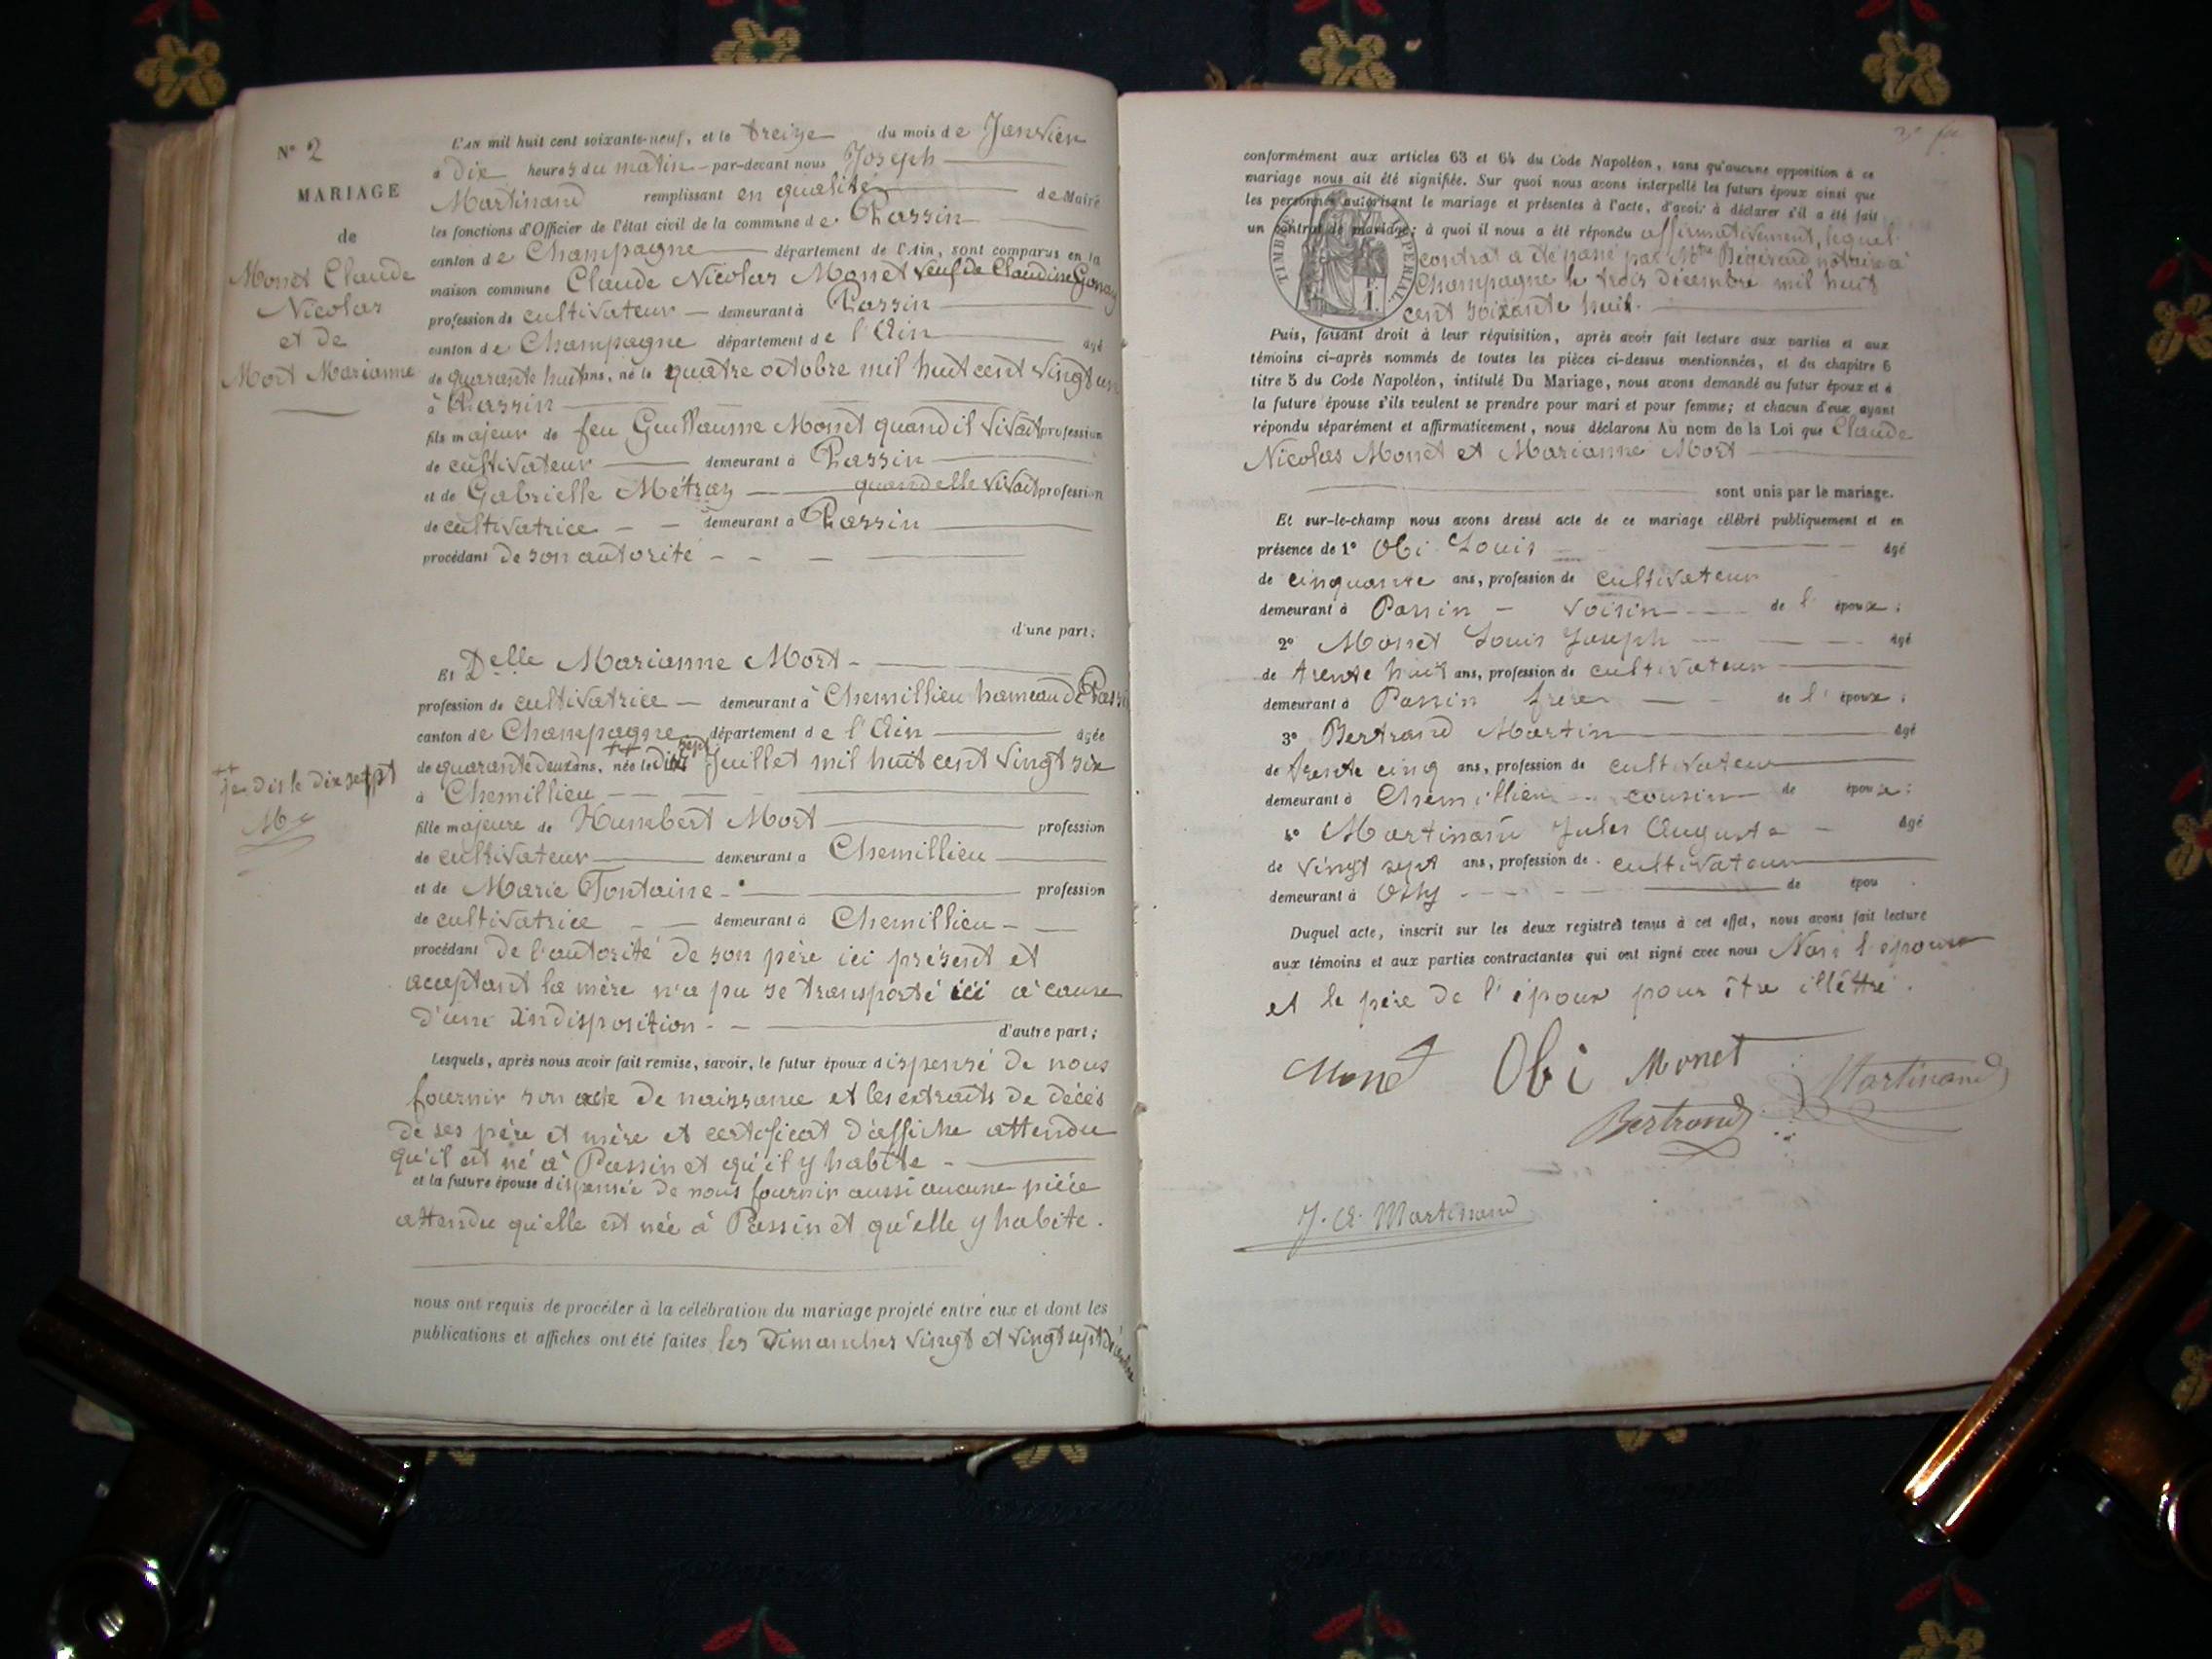 N° 2
MARIAGE
de
Monet Claude
Nicolas
et de
Mort Marianne
L'AN mil huit cent soixante-neuf, et le treize du mois de Janvier
à dix heures du matin par-devant nous Joseph
Martinand remplissant en qualité de Maire
les fonctions d'Officier de l'état civil de la commune de Passin
canton de Champagne département de l'Ain, sont comparus en la
maison commune Claude Nicolas Monet veuf de Claudine Gonay
profession de cultivateur demeurant à Passin
canton de Champagne département de l'Ain agé
de quarante huit ans, né le quatre octobre mil huit cent vingt un
à Passin
fils majeur de feu Guillaume Monet quand il vivait profession
de cultivateur demeurant à Passin
et de Gabrielle Métraz quand elle vivait profession
de cultivatrice demeurant à Passin
procédant de son autorité
d'une part;
Et Delle Marianne Mort
profession de cultivatrice demeurant à Chemillieu hameau de Passin
canton de Champagne département de l'Ain agée
de quarante deux ans, née le dix sept Juillet mil huit cent vingt six
à Chemillieu
++ je dis le dix sept
fille majeure de Humbert Mort profession
de cultivateur demeurant a Chemillieu
et de Marie Fontaine profession
de cultivatrice demeurant à Chemillieu
procédant de l'autorité de son père ici présent et
acceptant la mère n'a pu se transporté ici a cause
d'une indisposition d'autre part;
Lesquels, après nous avoir fait remise, savoir, le futur époux dispensé de nous
fournir son acte de naissance et les extraits de décès
de ses père et mère et certificat d'affiche attendu
qu'il est né à Passin et qu'il y habite
et la future épouse dispensée de nous fournir aussi aucune pièce
attendu qu'elle est née à Passin et qu'elle y habite.
nous ont requis de procéder à la célébration du mariage projeté entre eux et dont les
publications et affiches ont été faites les Dimanches vingt et vingt sept décembre
conformément aux articles 63 et 64 du Code Napoléon, sans qu'aucune opposition à ce
mariage nous ait été signifiée. Sur quoi nous avons interpellé les futurs époux ainsi que
les personnes autorisant le mariage et présentes à l'acte, d'avoir à déclarer s'il a été fait
un contrat de mariage; à quoi il nous a été répondu affirmativement, lequel
contrat a été passé par Mtre Bégerand notaire à
Champagne le trois décembre mil huit
cent soixante huit.
TIMBRE IMPERIAL
Puis, faisant droit à leur réquisition, après avoir fait lecture aux parties et aux
témoins ci-après nommés de toutes les pièces ci-dessus mentionnées, et du chapitre 6
titre 5 du Code Napoléon, intitulé Du Mariage, nous avons demandé au futur époux et à
la future épouse s'ils veulent se prendre pour mari et pour femme; et chacun d'eux ayant
répondu séparément et affirmativement, nous déclarons Au nom de la Loi que Claude
Nicolas Monet et Marianne Mort
sont unis par le mariage.
Et sur-le-champ nous avons dressé acte de ce mariage célébré publiquement et en
présence de 1° Obi Louis âgé
de cinquante ans, profession de cultivateur
demeurant à Passin voisin de l'époux;
2° Monet Louis Joseph âgé
de trente huit ans, profession de cultivateur
demeurant à Passin frère de l'époux;
3° Bertrand Martin âgé
de trente cinq ans, profession de cultivateur
demeurant à Chemillieu cousin de épouse;
4° Martinand Jules Auguste âgé
de vingt sept ans, profession de cultivateur
demeurant à Ossy de épou
Duquel acte, inscrit sur les deux registres tenus à cet effet, nous avons fait lecture
aux témoins et aux parties contractantes qui ont signé avec nous Non l'épouse
et le père de l'époux pour être illêttré.
Monet Obi Monet Martinand
Bertrand
J. A. Martinand